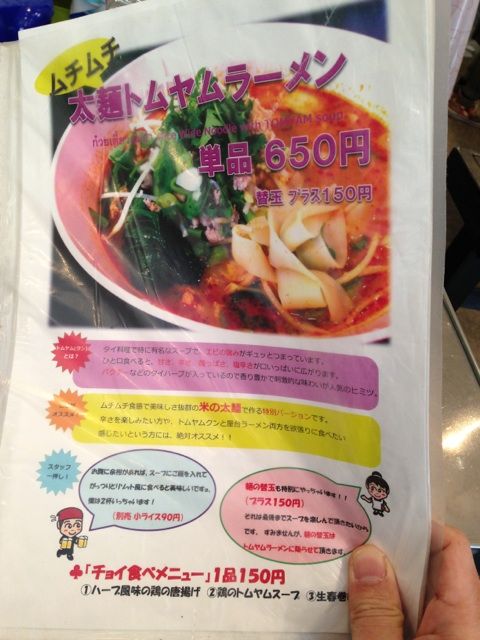 ムチムチ
太麺トムヤムラーメン
Wide Noodle with TOMYAM soup
単品 650円
替玉 プラス150円
トムヤム(クン)
とは?
タイ料理で特に有名なスープで、エビの旨みがギュッとつまっています。
ひと口食べると、甘さ、辛さ、酸っぱさ、塩辛さが口いっぱいに広がります。
パクチーなどのタイハーブが入っているので香り豊かで刺激的な味わいが人気のヒミツ。
オススメ!
ムチムチ食感で美味しさ抜群の米の太麺で作る特別バージョンです。
辛さを楽しみたい方や、トムヤムクンと屋台ラーメン両方を欲張りに食べたい
感じたいという方には、絶対オススメ!!
スタッフ
一押し!
お腹に余裕があれば、スープにご飯を入れて
がっつりリゾット風に食べると美味しいですよ。
僕は2杯いっちゃいます!
(別売 小ライス90円)
麺の替玉も特別にやっちゃいます!!
(プラス150円)
それは最後までスープを楽しんで頂きたいから
です。すみませんが、麺の替玉は
トムヤムラーメンに限らせて頂きます。
♣「チョイ食べメニュー」1品150円
①ハーブ風味の鶏の唐揚げ ②鶏のトムヤムスープ ③生春巻